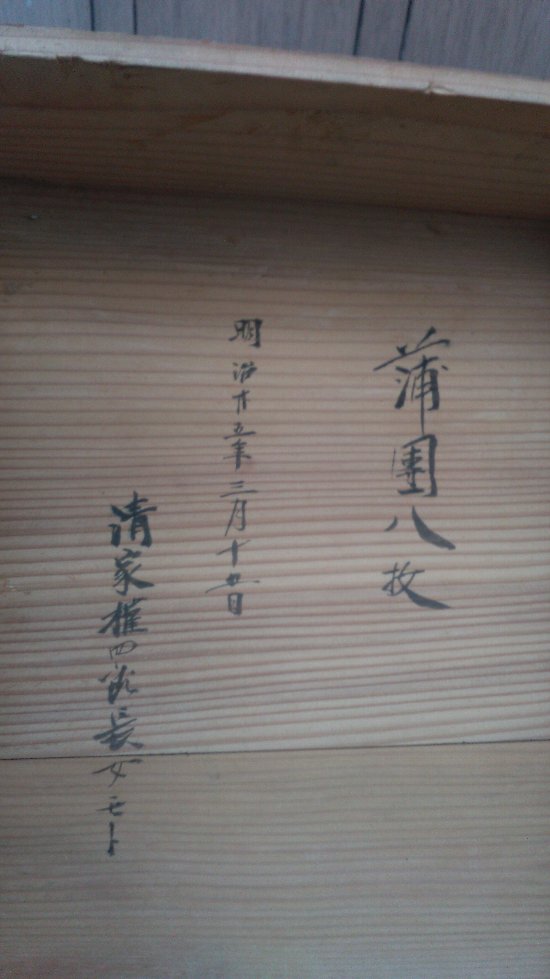 蒲團八枚
明治廿五年三月十五日
清家権四郎長女モト